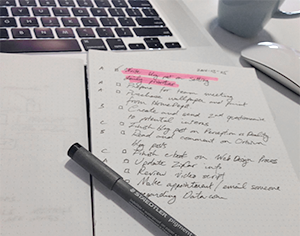 A Prepare for team meeting
A Purchase wallpaper and paint
from Home Depot
B Create and send 2nd questionnaire
to potential interns
C Finish blog post on Perception vs Reality
B Read and comment on
blog posts
C Finish eBook on Web Design Process
A Update Zipcar info
Review video script
Make appointment / email someone
regarding Data.com
STAEDTLER pigment